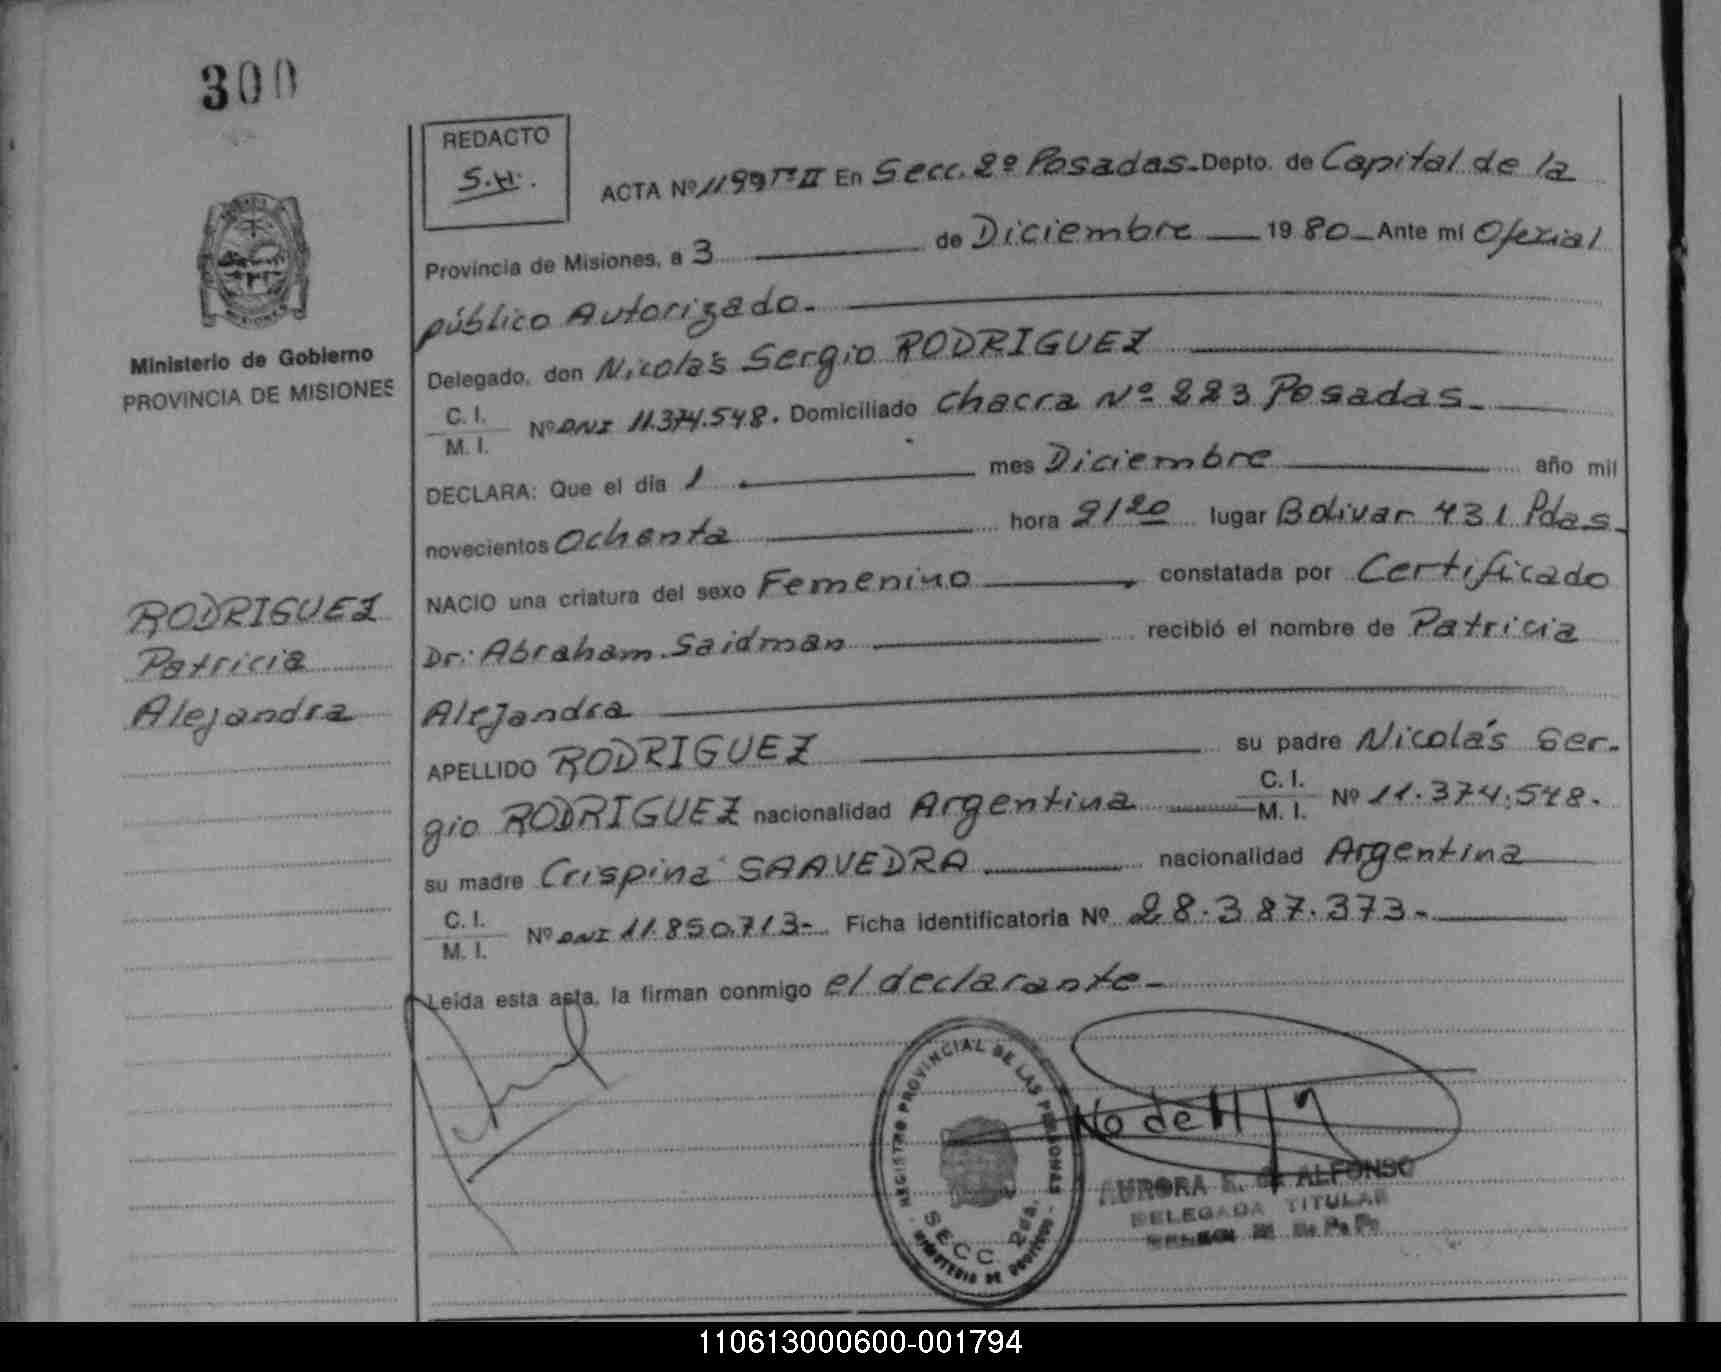 300
REDACTO
S.H.
ACTA Nº 1199 Tº II En Secc. 2º Posadas.- Depto. de Capital de la
Provincia de Misiones, a 3 de Diciembre 1980 Ante mí Oficial
público Autorizado.
Delegado, don Nicolás Sergio RODRIGUEZ
C. I.
M. I. Nº DNI 11.374.548. Domiciliado Chacra Nº 223 Posadas.
DECLARA: Que el día 1 mes Diciembre año mil
novecientos Ochenta hora 21 20 lugar Bolivar 431 Pdas.
NACIO una criatura del sexo Femenino constatada por Certificado
Dr: Abraham Saidman recibió el nombre de Patricia
Alejandra
APELLIDO RODRIGUEZ su padre Nicolás Ser-
gio RODRIGUEZ nacionalidad Argentina C. I. M. I. Nº 11.374.548.
su madre Crispina SAAVEDRA nacionalidad Argentina
C. I.
M. I. Nº DNI 11.850.713- Ficha identificatoria Nº 28.387.373-
Leída esta acta, la firman conmigo el declarante-
Ministerio de Gobierno
PROVINCIA DE MISIONES
RODRIGUEZ
Patricia
Alejandra
REGISTRO PROVINCIAL DE LAS PERSONAS
SECC. 2da.
MINISTERIO DE GOBIERNO
AURORA E. de ALFONSO
DELEGADA TITULAR
110613000600-001794